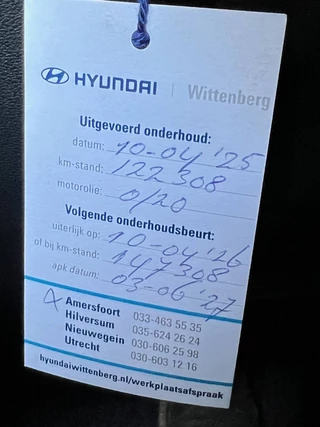 HYUNDAI | Wittenberg
Uitgevoerd onderhoud:
datum: 10-04 '25
km-stand: 122 308
motorolie: 0/20
Volgende onderhoudsbeurt:
uiterlijk op: 10-04 '26
of bij km-stand: 147308
apk datum: 03-06 '27
Amersfoort 033-463 55 35
Hilversum 035-624 26 24
Nieuwegein 030-606 25 98
Utrecht 030-603 12 16
hyundaiwittenberg.nl/werkplaatsafspraak